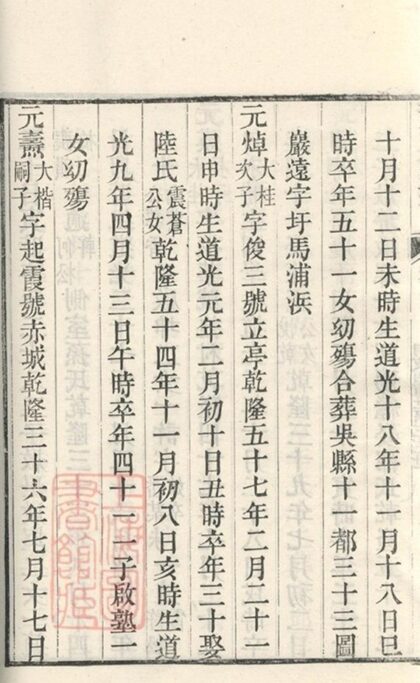 十月十二日未時生道光十八年十一月十八日巳
時卒年五十一女幼殤合葬吳縣十一都三十三圖
巖遠字圩馬浦浜
元焯大桂次子字俊三號立亭乾隆五十七年二月二十一
日申時生道光元年二月初十日丑時卒年三十娶
陸氏震蒼公女乾隆五十四年十一月初八日亥時生道
光九年四月十三日午時卒年四十一一子啟塾二
女幼殤
元燾大楷嗣子字起霞號赤城乾隆三十六年七月十七日